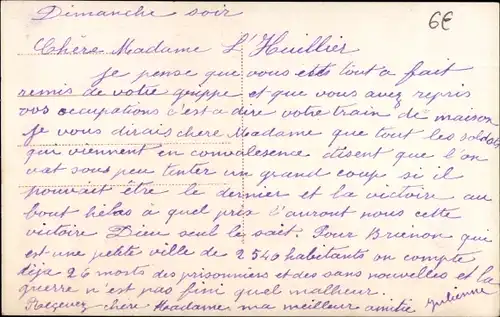 Dimanche soir
6€
Chère Madame L'Huillier
Je pense que vous etes tout a fait
remis de votre grippe et que vous avez repris
vos occupations c'est a dire votre train de maison
Je vous dirais chere Madame que tout les soldats
qui viennent en convalesence disent que l'on
vat sous peu tenter un grand coup si il
pouvait être le dernier et la victoire au
bout hélas à quel prix l'auront nous cette
victoire Dieu seul le sait. Pour Brienon qui
est une petite ville de 2540 habitants on compte
déja 26 morts des prisonniers et des sans nouvelles et la
guerre n'est pas fini quel malheur.
Recevez chère Madame ma meilleur amitie Julienne